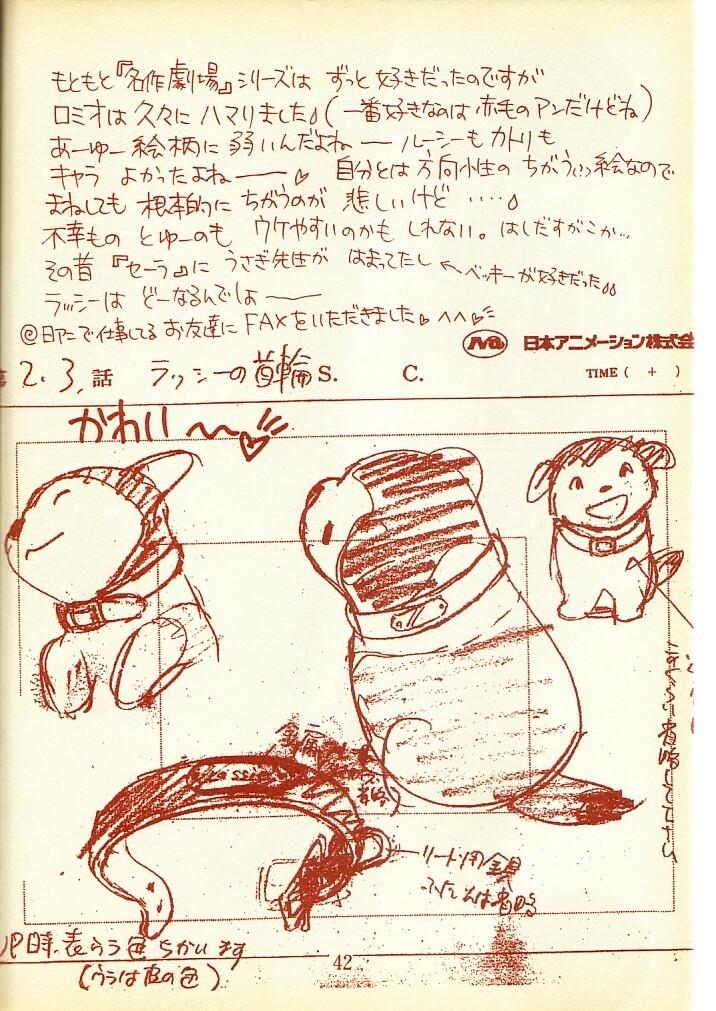 もともと『名作劇場』シリーズは ずっと好きだったのですが
ロミオは久々に ハマりました。(一番好きなのは赤毛のアンだけどね)
あーゆー絵柄に弱いんだよね― ルーシーもカトリも
キャラ よかったよね――♡ 自分とは方向性の ちがう絵なので
まねしても 根本的に ちがうのが 悲しいけど ‥‥。
不幸もの とゆーのも ウケやすいのかも しれない。はしだすがこか…
その昔『セーラ』に うさぎ先生が はまってたし ←ベッキーが好きだった。
ラッシーは どーなるんでしょ――
@日アニで仕事してる お友達に FAXをいただきました♡ ^^♡
日本アニメーション株式会
2.3.話 ラッシーの首輪 S. C. TIME ( + )
かわいい〜〜♡
金属
リード用金具
ふだんは省略
表うら色ちがいます
(ウラは皮の色)
42